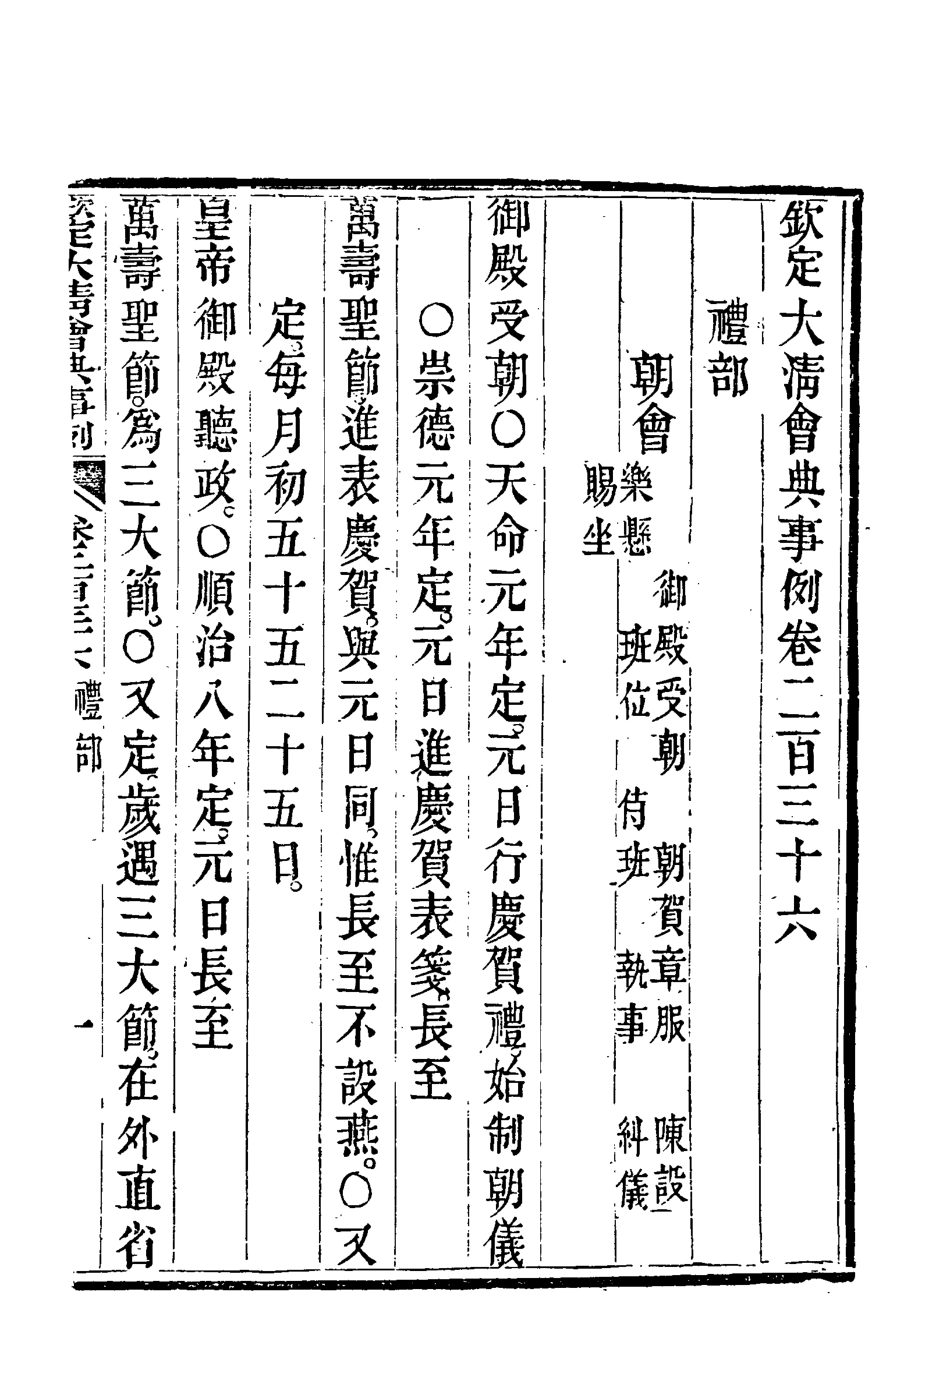 欽定大清會典事例卷二百三十六
禮部
朝會
御殿受朝　朝賀章服　陳設
樂懸　班位　侍班　執事　糾儀
賜坐
御殿受朝○天命元年定。元日行慶賀禮。始制朝儀
○崇德元年定。元日進慶賀表箋。長至
萬壽聖節。進表慶賀。與元日同。惟長至不設燕。○又
定。每月初五十五二十五日。
皇帝御殿聽政。○順治八年定。元日長至
萬壽聖節。爲三大節。○又定。歲遇三大節。在外直省
欽定大清會典事例　卷二百三十六　禮部　一